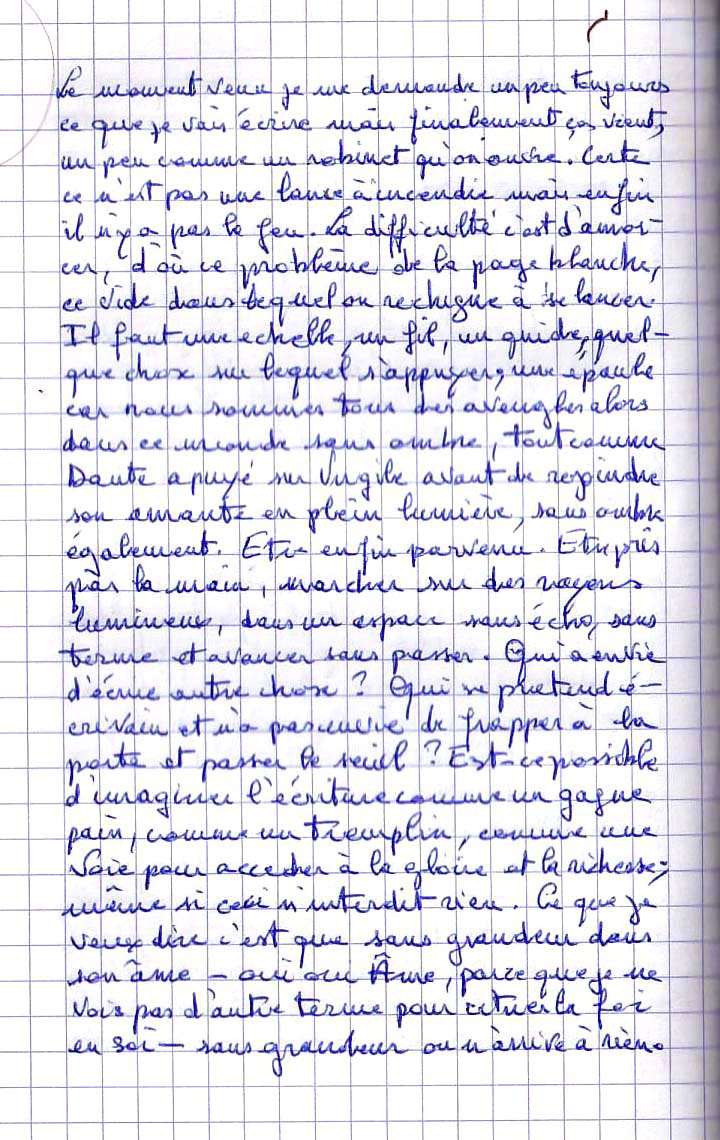 Le moment venu je me demande un peu toujours
ce que je vais écrire mais finalement ça vient,
un peu comme un robinet qu'on ouvre. Certe
ce n'est pas une lance à incendie mais enfin
il n'y a pas le feu. La difficulté c'est d'amor-
cer, d'où ce problème de la page blanche,
ce vide dans lequel on rechigne à se lancer.
Il faut une echelle, un fil, un guide, quel-
que chose sur lequel s'appuyer, une épaule
car nous sommes tous des aveugles alors
dans ce monde sans ombre, tout comme
Dante apuyé sur Virgile avant de rejoindre
son amante en plein lumière, sans ombre
également. Etre enfin parvenu. Etre pris
par la main, marcher sur des rayons
lumineux, dans un espace sans écho, sans
terme et avancer sans passer. Qui a envie
d'écrire autre chose ? Qui se pretend é-
crivain et n'a pas envie de frapper à la
porte et passer le seuil ? Est-ce possible
d'imaginer l'écriture comme un gagne
pain, comme un tremplin, comme une
voie pour acceder à la gloire et la richesse;
même si ceci n'interdit rien. Ce que je
veux dire c'est que sans grandeur dans
son âme - oui oui Âme, parce que je ne
vois pas d'autre terme pour situer la foi
en soi - sans grandeur on n'arrive à rien.